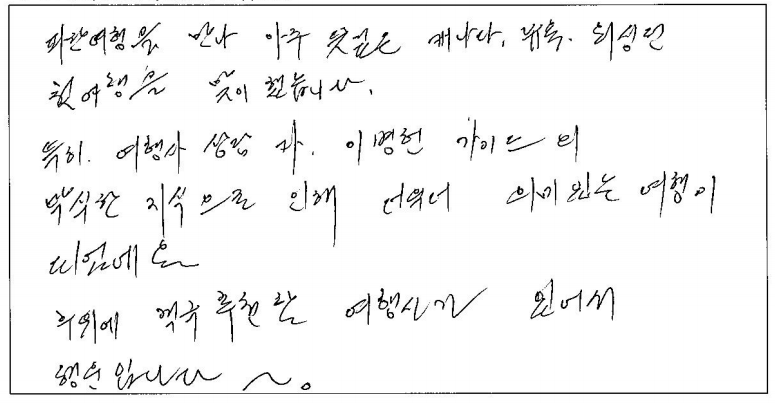 파란여행을 만나 아주 뜻깊은 캐나다, 뉴욕.
첫여행을 맞이 했습니다.
특히. 여행사 상담 과. 이병헌 가이드의
박식한 지식으로 인해 더욱더 의미있는 여행이
되었네요~
주위에 적극 추천할 여행사가 있어서
행운입니다 ~.